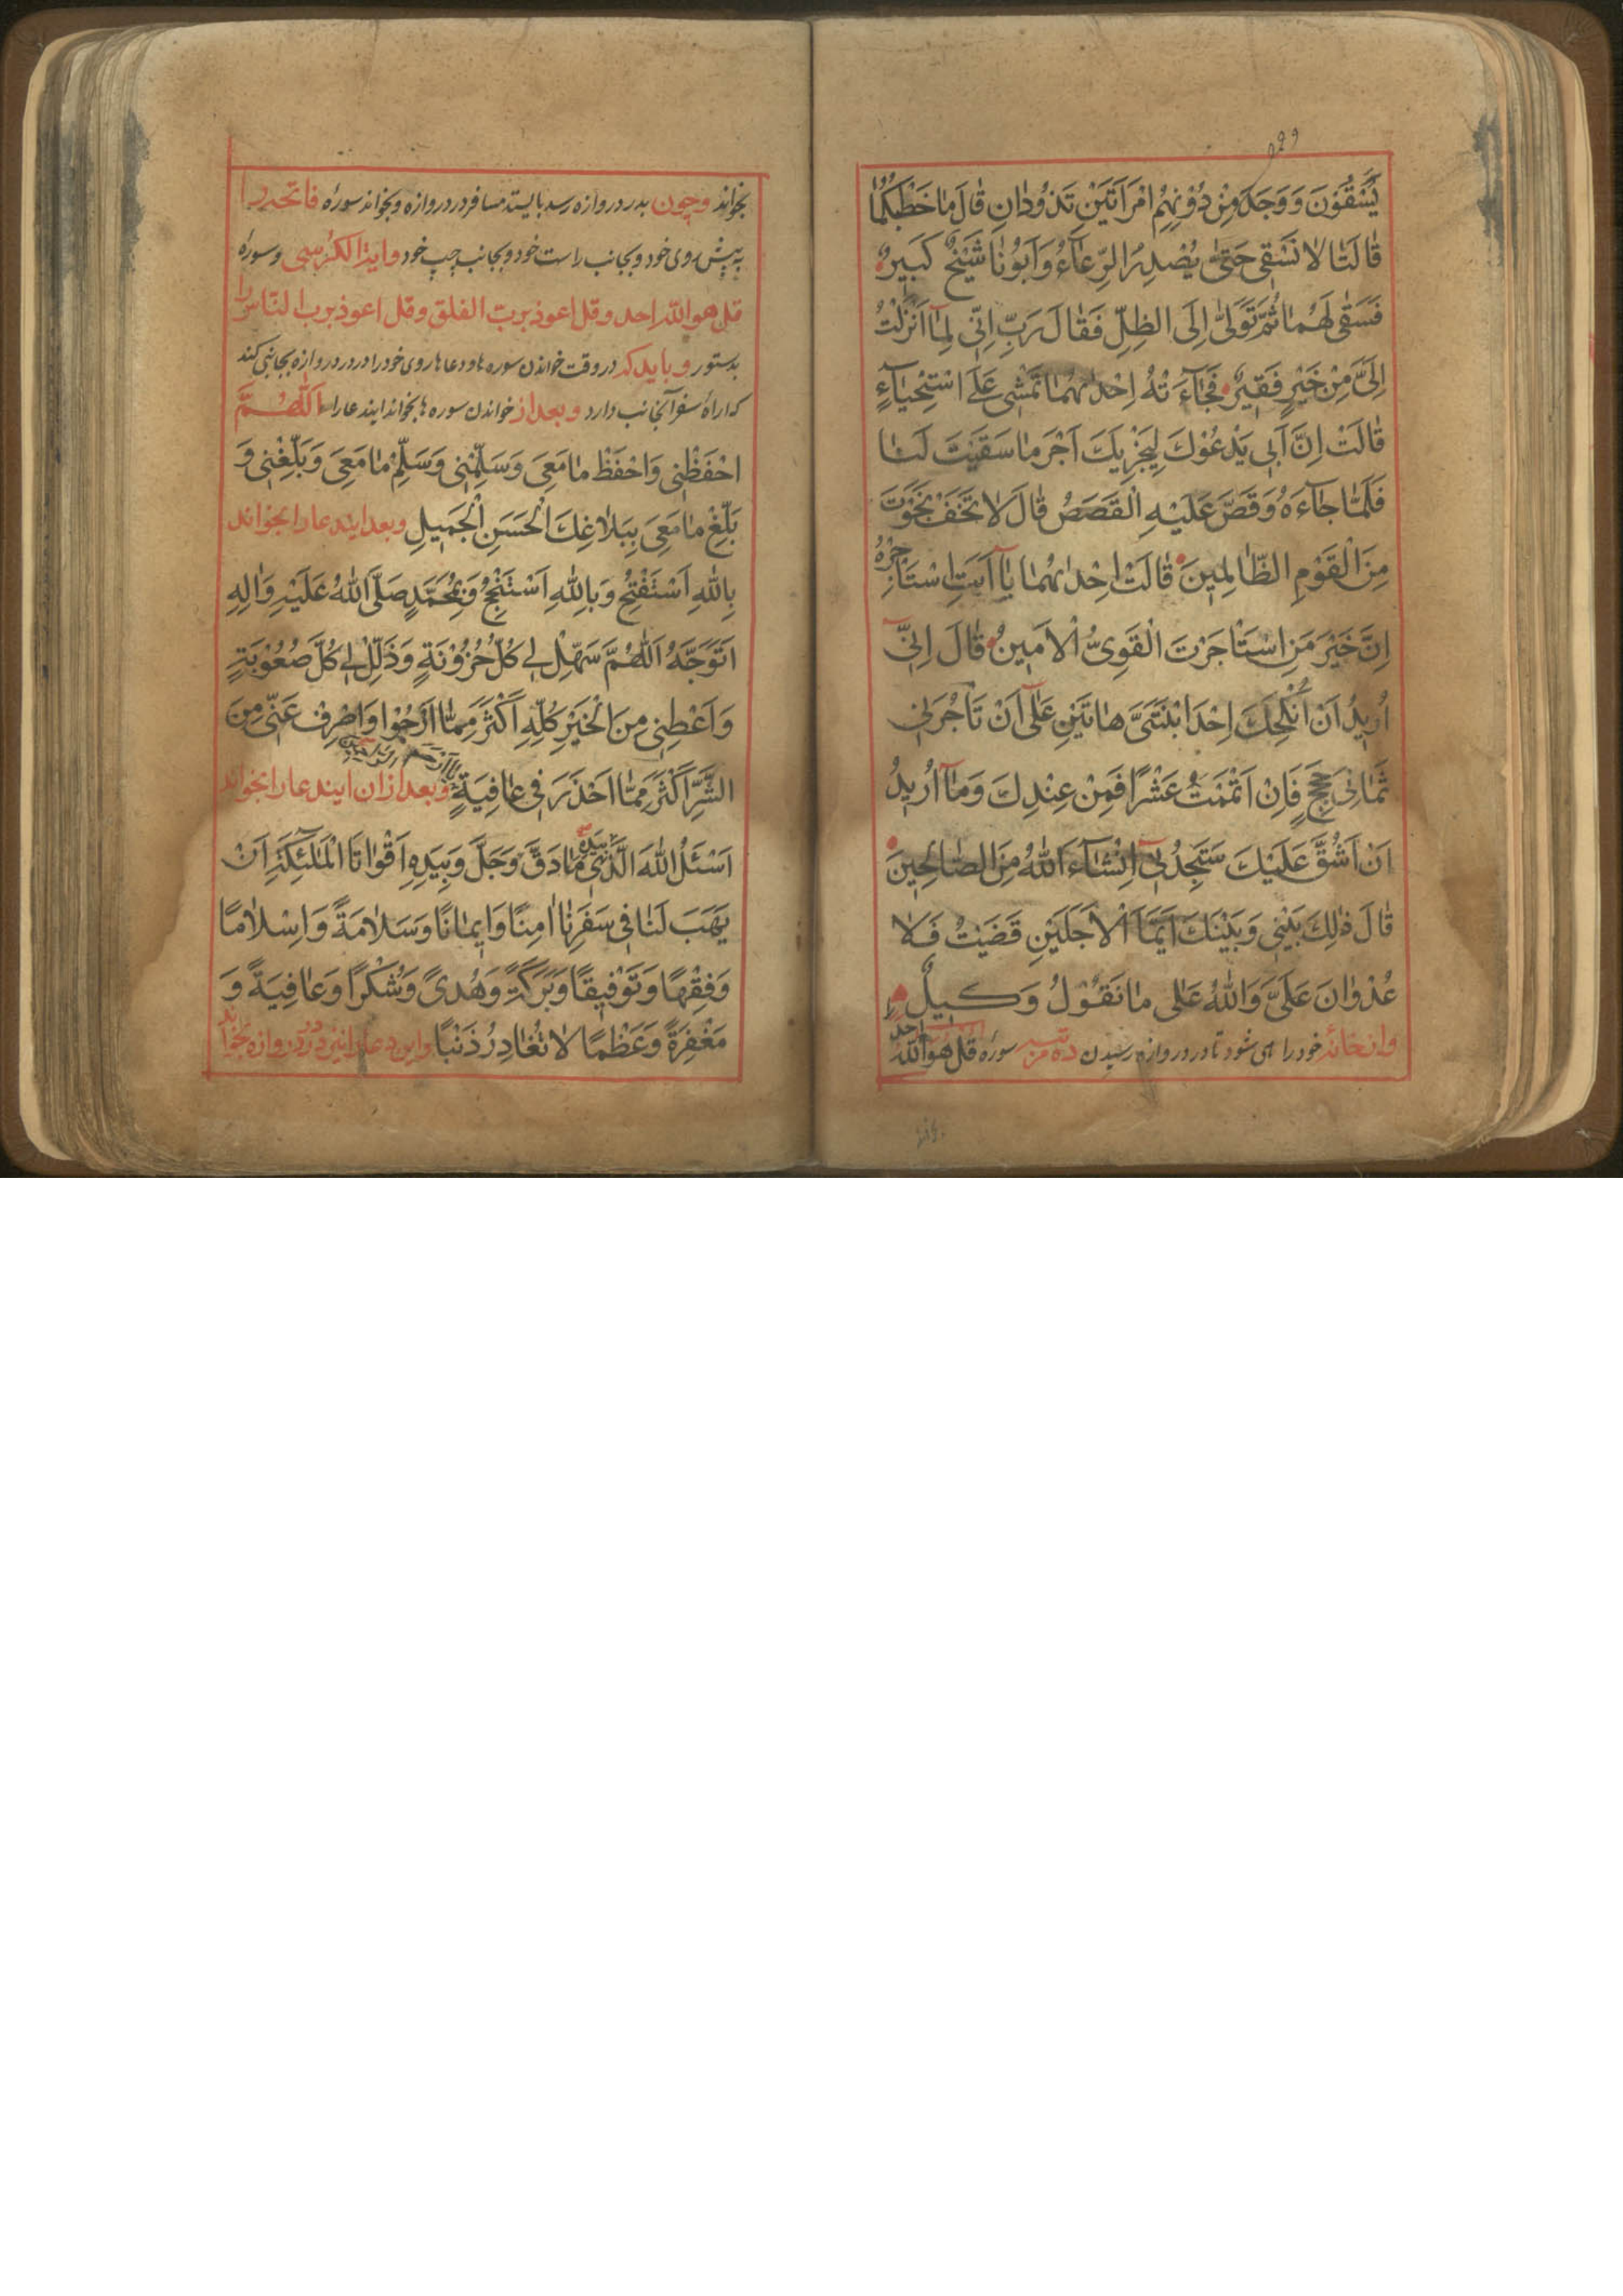 يَسْقُونَ وَوَجَدَ مِنْ دُونِهِمُ امْرَاَتَيْنِ تَذُودٰانِ قٰالَ مٰا خَطْبُكُمٰا
قٰالَتٰا لٰا نَسْقِي حَتّٰى يُصْدِرَ الرِّعٰآءُ وَاَبُونٰا شَيْخٌ كَبِيرٌ
فَسَقٰى لَهُمٰا ثُمَّ تَوَلّٰى اِلَى الظِّلِّ فَقٰالَ رَبِّ اِنِّي لِمٰا اَنْزَلْتَ
اِلَيَّ مِنْ خَيْرٍ فَقِيرٌ فَجٰآءَتْهُ اِحْدٰيهُمٰا تَمْشِي عَلَى اسْتِحْيٰآءٍ
قٰالَتْ اِنَّ اَبِي يَدْعُوكَ لِيَجْزِيَكَ اَجْرَ مٰا سَقَيْتَ لَنٰا
فَلَمّٰا جٰآءَهُ وَقَصَّ عَلَيْهِ الْقَصَصَ قٰالَ لٰا تَخَفْ نَجَوْتَ
مِنَ الْقَوْمِ الظّٰالِمِينَ قٰالَتْ اِحْدٰيهُمٰا يٰا اَبَتِ اسْتَأْجِرْهُ
اِنَّ خَيْرَ مَنِ اسْتَأْجَرْتَ الْقَوِيُّ الْاَمِينُ قٰالَ اِنِّي
اُرِيدُ اَنْ اُنْكِحَكَ اِحْدَى ابْنَتَيَّ هٰاتَيْنِ عَلٰى اَنْ تَأْجُرَنِي
ثَمٰانِيَ حِجَجٍ فَاِنْ اَتْمَمْتَ عَشْرًا فَمِنْ عِنْدِكَ وَمٰا اُرِيدُ
اَنْ اَشُقَّ عَلَيْكَ سَتَجِدُنِي اِنْشٰآءَ اللّٰهُ مِنَ الصّٰالِحِينَ
قٰالَ ذٰلِكَ بَيْنِي وَبَيْنَكَ اَيَّمَا الْاَجَلَيْنِ قَضَيْتُ فَلٰا
عُدْوٰانَ عَلَيَّ وَاللّٰهُ عَلٰى مٰا نَقُولُ وَكِيلٌ
وازخانهٔ خود راهی شود تا در دروازه رسیدن ده مرتبه سوره قل هو الله احد
بخواند وچون بدر دروازه رسد بایستد مسافر در دروازه وبخواند سورهٔ فاتحه را
به پیش روی خود وبجانب راست خود وبجانب چپ خود وایة الکرسی وسورهٔ
قل هو الله احد وقل اعوذ برب الفلق وقل اعوذ برب الناس را
بدستور وباید که در وقت خواندن سوره ها ودعاها روی خود را در در دروازه بجانبی کند
که ارادهٔ سفر آنجانب دارد وبعد از خواندن سوره ها بخواند ایندعا را اَللّٰهُمَّ
احْفَظْنِي وَاحْفَظْ مٰا مَعِيَ وَسَلِّمْنِي وَسَلِّمْ مٰا مَعِيَ وَبَلِّغْنِي وَ
بَلِّغْ مٰا مَعِيَ بِبَلٰاغِكَ الْحَسَنِ الْجَمِيلِ وبعد ایندعا را بخواند
بِاللّٰهِ اَسْتَفْتِحُ وَبِاللّٰهِ اَسْتَنْجِحُ وَبِمُحَمَّدٍ صَلَّى اللّٰهُ عَلَيْهِ وَاٰلِهِ
اَتَوَجَّهُ اَللّٰهُمَّ سَهِّلْ لِي كُلَّ حُزُونَةٍ وَذَلِّلْ لِي كُلَّ صُعُوبَةٍ
وَاَعْطِنِي مِنَ الْخَيْرِ كُلِّهِ اَكْثَرَ مِمّٰا اَرْجُوا وَاصْرِفْ عَنِّي مِنَ
الشَّرِّ اَكْثَرَ مِمّٰا اَحْذَرُ فِي عٰافِيَةٍ وبعد ازان ایندعا را بخواند
اَسْئَلُ اللّٰهَ الَّذِي بِيَدِهِ مٰا دَقَّ وَجَلَّ وَبِيَدِهِ اَقْوٰاتُ الْمَلٰئِكَةِ اَنْ
يَهَبَ لَنٰا فِي سَفَرِنٰا اَمْنًا وَاِيمٰانًا وَسَلٰامَةً وَاِسْلٰامًا
وَفِقْهًا وَتَوْفِيقًا وَبَرَكَةً وَهُدًى وَشُكْرًا وَعٰافِيَةً وَ
مَغْفِرَةً وَعَظْمًا لٰا تُغٰادِرُ ذَنْبًا واین دعا را نیز در دروازه بخواند